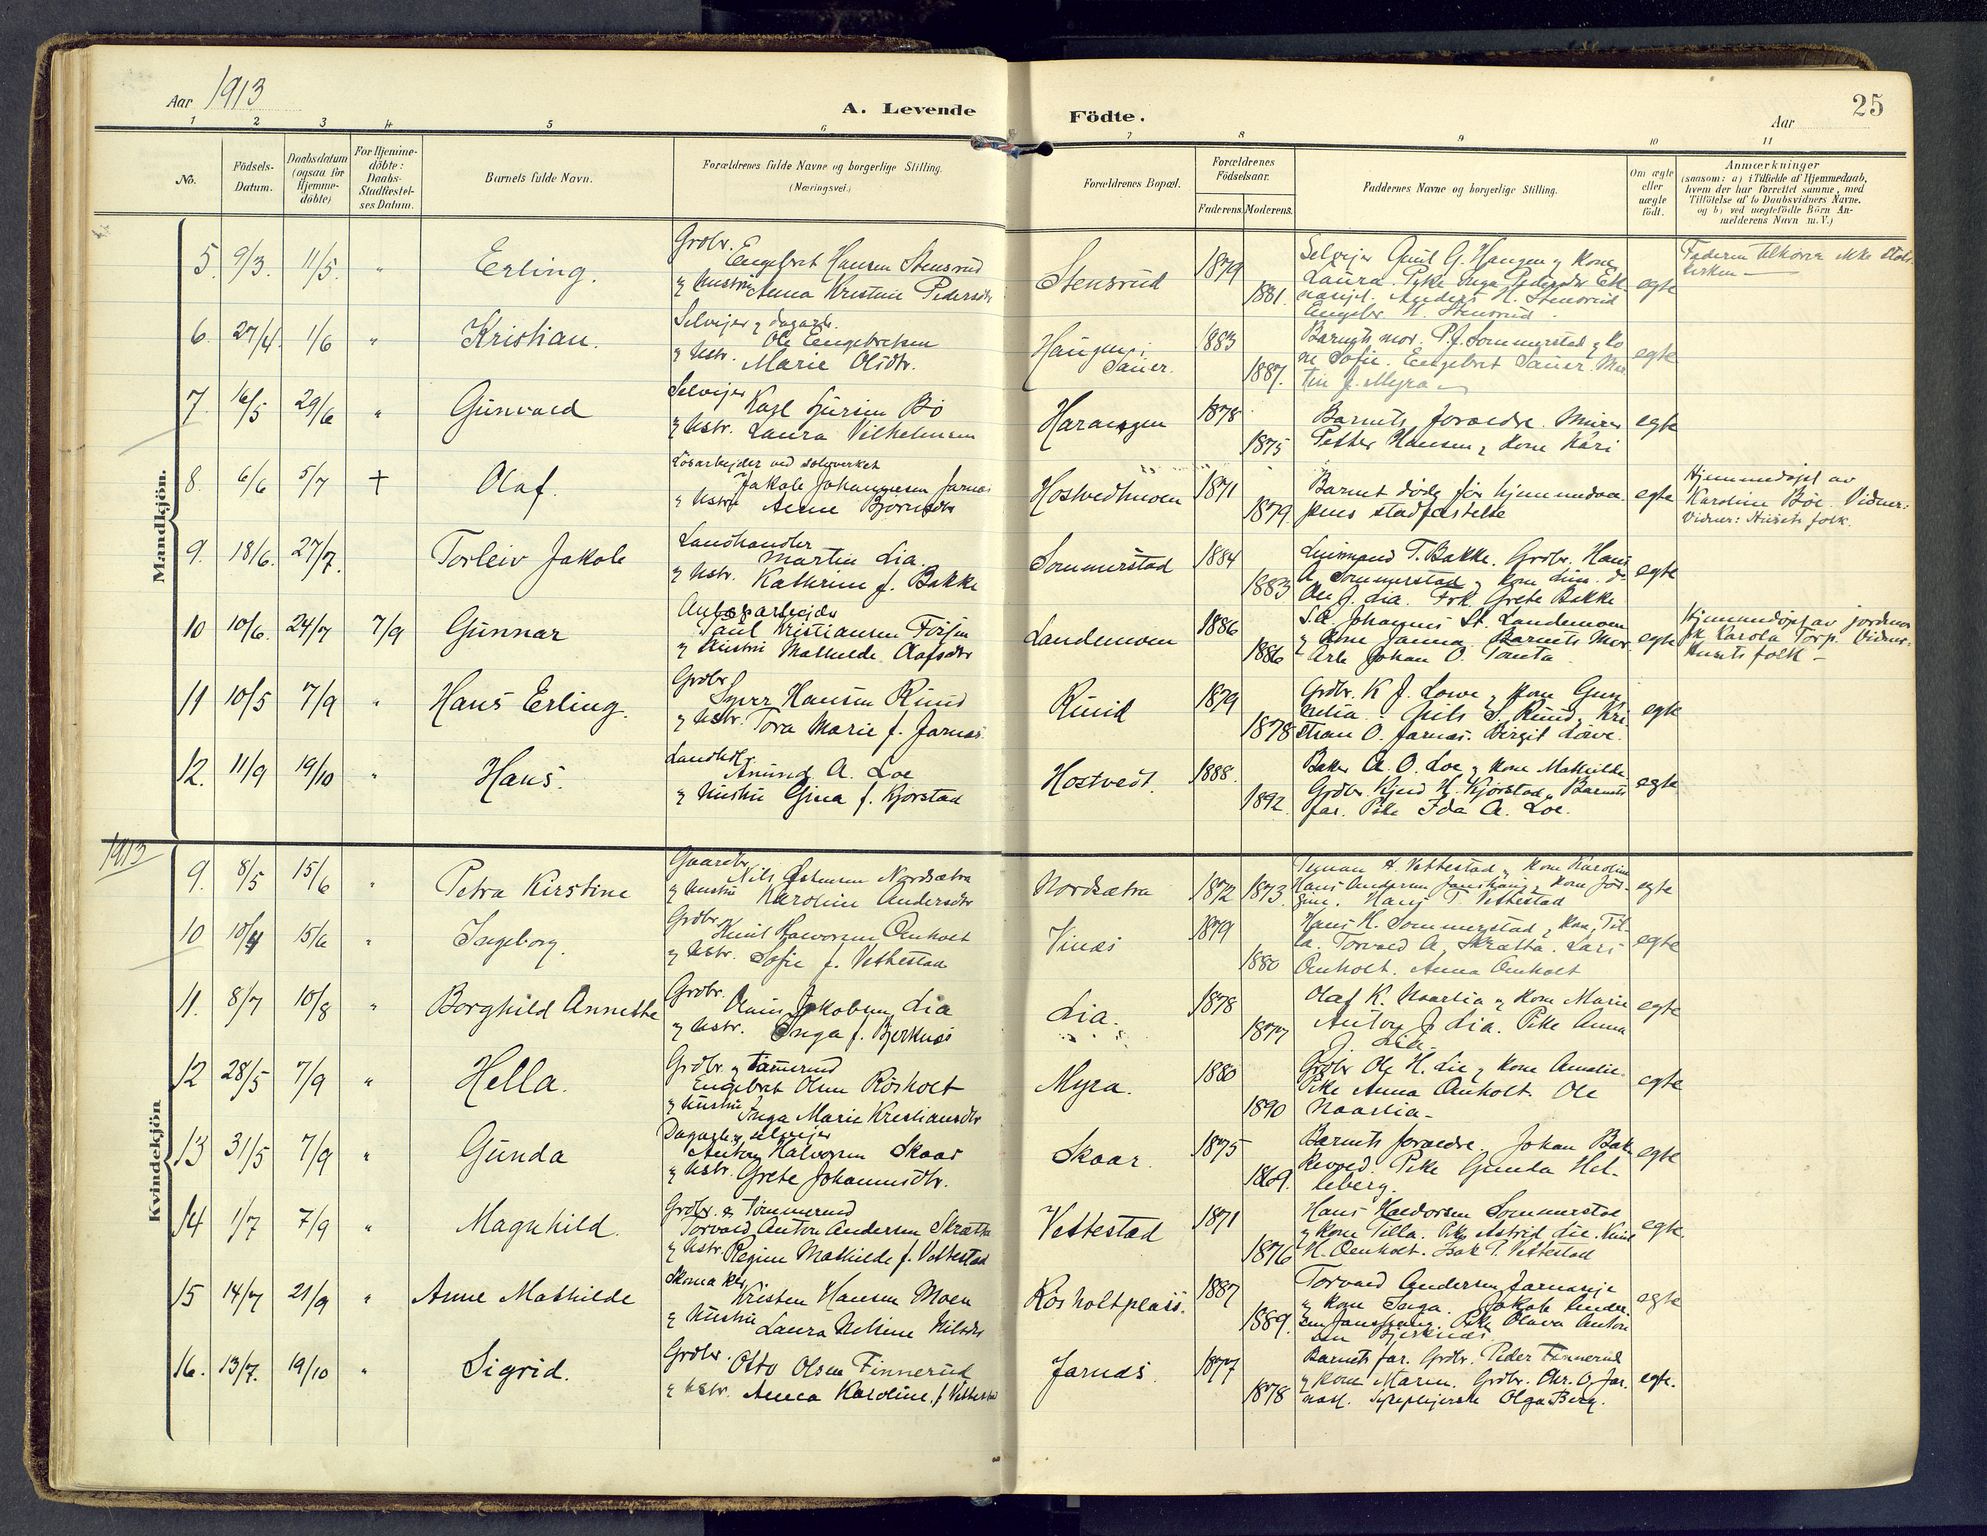 Aar 1913
A. Levende Födte.
Aar
25
1 2 3 4 5 6 7 8 9 10 11
No.
Födsels-Datum.
Daabsdatum (ogsaa for Hjemmedöbte)
For Hjemmedöbte: Daabs-Stadfæstelses Datum.
Barnets fulde Navn.
Forældrenes fulde Navne og borgerlige Stilling.
(Næringsvei.)
Forældrenes Bopæl.
Forældrenes Födselsaar.
Faderens. Moderens.
Faddernes Navne og borgerlige Stilling.
Om ægte eller uægte födt.
Anmærkninger
(saasom: a) i Tilfælde af Hjemmedaab, hvem der har forrettet samme, med Tilföielse af to Daabsvidners Navne, og b) ved uægtefödte Börn Anmelderens Navn m. V.)
Mandkjön.
5. 9/3. 11/5. " Erling.
Grdbr. Engebret Hansen Stensrud
og hustru Anna Kristine Pedersdtr
Stensrud 1879 1881.
Laura. Pike Inga
Anders H. Stensrud
Engebr. H. Stensrud.
egte
6. 27/4. 1/6 " Kristian.
Selveier og dagarb.
Ole Engebretsen
og hstr. Marie Olsdtr.
Haugen i Sauer. 1883 1887.
Barnets mor. P. J. Sommerstad og kone Sofie. Engebret Sauer. Martin J. Myra
egte
7. 16/5 29/6 " Gunvald
Selveier Karl Bö
og hstr. Laura Vilhelmsen
1878 1875
Barnets foraeldre.
Petter Hansen og kone Kari
egte
8. 6/6 5/7 + Olaf.
Lösarbejder ved sölvverket
Jakob Johannesen Jarnæs
og hustru Anne Bjornsdtr
Hostvedtmoen 1871 1879.
Barnet döde för hjemmedaapens stadfestelse
egte
Hjemmedöpt av Karoline Böe. Vidner: Husets folk.
9. 18/6. 27/7. Torleiv Jakob
Landhandler Martin Lia.
og hstr. Kathrine f. Bakke
Sommerstad 1884 1883
T. Bakke. Grdbr. Hans A. Sommerstad og kone
J. Lia. Frk. Grete Bakke
egte
10 10/6. 24/7 7/9 Gunnar
Paul Kristiansen
og hustru Mathilde Olafsdtr
Landemoen 1886 1886
Johannes St. Landemoen
og kone Janna Barnets mor
Arb. Johan O. Tomta.
egte
Hjemmedöpt av jordmor frk. Karola Torp. Vidner: Husets folk -
11 10/5 7/9 " Hans Erling.
Grdbr. Syver Hansen Ruud
og hstr. Tora Marie f. Jarnæs.
Ruud 1879 1878
Grdbr. K. J. Lowe og kone Gunnelia. Nils S. Ruud. Kristian O. Jarnæs. Birgit Löwe.
egte
12. 11/9 19/10 " Hans.
Landhdl. Anund A. Loe
og hustru Gina f. Kjorstad
Hostvedt. 1888. 1892.
Baker A. O. Loe og kone Mathilde.
Grdbr. H. Kjorstad, Barnets far. Pike Ida A. Loe.
egte
1913
Kvindekjön
9. 8/5 15/6 " Petra Kirstine
Gaardbr. Nils Nordsætra
og hustru Karoline Andersdtr
Nordsætra 1872 1873.
H. Vettestad og kone Karoline
Hans Andersen og kone
Hans T. Vettestad
egte
10 10/4 15/6 " Ingeborg.
Grdbr. Knut Halvorsen Omholt
og hstr. Sofie f. Vettestad
Vinæs 1879 1880
Hans H. Sommerstad og kone Tilla. Torvald A. Skrætta. Lars Omholt. Anna Omholt
egte
11. 8/7 10/8 " Borghild Annette
Grdbr. Olaus Jakobsen Lia
og hstr. Inga f. Bjerknæs
Lia. 1878 1877
Olaf K. Naarlia og kone Marie
Anton J. Lia. Pike Anna J. Lia.
egte
12 28/5 7/9 " Hella.
Grdbr. og tömmermd
Engebret Olsen Rosholt
og hustru Inga Marie Kristiansdtr
Myra. 1880 1890
Grdbr. Ole H. Lie og kone Amalie.
Pike Anna Omholt. Ole Naarlia -
egte
13 31/5 7/9 " Gunda
Dagarb. og selveier
Anton Halvorsen Skaar
og hstr. Grete Johannesdtr.
Skaar. 1875 1869.
Barnets foraeldre. Johan Bakkevold. Pike Gunda Helleberg.
egte
14 1/7 7/9 " Magnhild.
Grdbr. og Tömmermd
Torvald Anton Andersen Skrætta
og hstr. Regine Mathilde f. Vettestad
Vettestad 1871 1876
Hans Haldorsen Sommerstad
og kone Tilla. Pike Astrid Lie. Knut H. Omholt. Isak T. Vettestad
egte.
15 14/7 21/9 " Anne Mathilde
Skomaker Kristen Hansen Moen
og hustru Laura Nilsdtr
Rosholtplass. 1887 1889.
Torvald Andersen
og kone Inga. Jakob
Pike Olava Antonsen Bjerknæs
egte
16. 13/7. 19/10 " Sigrid.
Grdbr. Otto Olsen Finnerud
og hstr. Anna Karoline f. Vettestad
Jarnæs. 1877 1878
Barnets far. Grdbr. Peder Finnerud
og kone Maren. Grdbr. Chr. O. Jarnæs. Syerske Olga Berg.
egte.